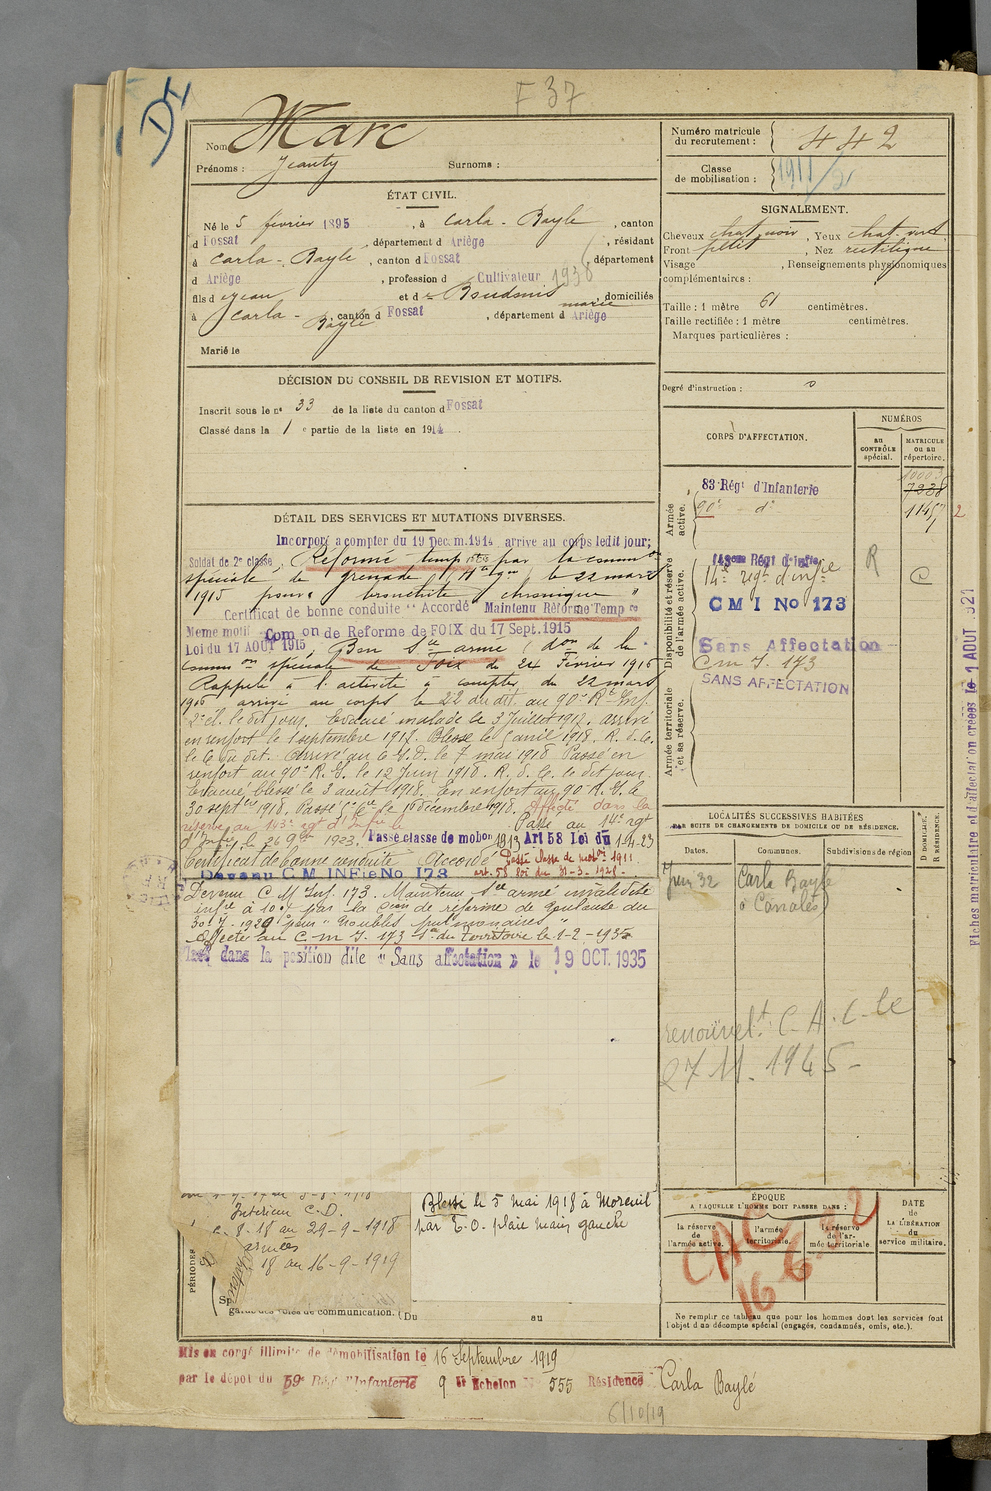 F 37
Nom Marc
Prénoms : Jeanty Surnoms :
ÉTAT CIVIL.
Né le 5 février 1895, à Carla-Bayle, canton
d Fossat, département d Ariège, résidant
à Carla-Bayle, canton d Fossat, département
d Ariège, profession d Cultivateur 1936
fils d e Jean et d e marie domiciliés
à Carla-Bayle, canton d Fossat, département d Ariège
Marié le
DÉCISION DU CONSEIL DE REVISION ET MOTIFS.
Inscrit sous le n° 33 de la liste du canton d Fossat
Classé dans la 1 e partie de la liste en 1914.
DÉTAIL DES SERVICES ET MUTATIONS DIVERSES.
Incorporé a compter du 19 Dec. m. 1914 arrive au corps ledit jour;
Soldat de 2e classe, Réformé temp res par la comm on
spéciale de grenade (Hte Gne) le 22 mars
1915 pour "bronchite chronique"
Certificat de bonne conduite "Accordé" Maintenu Réformé Temp re
Meme motif Com on de Reforme de FOIX du 17 Sept. 1915
Loi du 17 AOUT 1915, Bon Sce armé (don de la
Comm on spéciale de Foix du 24 Février 1916
Rappelé à l'activité à compter du 22 mars
1916 arrivé au corps le 22 du dit. au 90e Rt Inf.
2e cl. le dit jour. Evacué malade le 3 juillet 1917. arrivé
en renfort le 1 septembre 1917. Blessé le 5 avril 1918. R. d. C.
le 6 du dit. Arrivé au C.I.D. le 7 mai 1918 Passé en
renfort au 90e R.I. le 12 Juin 1918. R. d. C. le dit jour.
Evacué blessé le 3 août 1918. En renfort au 90 R.I. le
30 sept re 1918. Passé le 16 décembre 1918. Affecté dans la
réserve au 143e rgt d'Inf ie le Passé au 14e rgt
d'Inf ie, le 26 9bre 1923. Passe classe de mob on 1913 Art 58 Loi du 1-4-23
Certificat de bonne conduite "Accordé" Passé classe de mob on 1911.
art. 58 loi du 31-3-1928.
Devenu C M INFie No 173
Devenu C M Inf. 173. Maintenu Sce armé invalidité
inf re à 10% par la C on de réforme de Toulouse du
30-7-1929 pour "troubles pulmonaires"
Affecté au C.M.I. 173 Sn du Territoire le 1-2-1935
Placé dans la position dite "Sans affectation" le 19 OCT. 1935
Intérieur C.D.
8-18 au 29-9-1918
armées
18 au 16-9-1919
PÉRIODES
Blessé le 5 mai 1918 à Moreuil
par E.O. plaie main gauche
garde des voies de communication. (Du au
Mis en congé illimité de démobilisation le 16 Septembre 1919
par le dépot du 59e Rég. d'Infanterie 9 e Echelon N° 555 Résidence Carla Baylé
6/10/19
Numéro matricule du recrutement : 442
Classe de mobilisation : 1911/21
SIGNALEMENT.
Cheveux chat. noir, Yeux chat. vert
Front petit, Nez rectiligne
Visage , Renseignements physionomiques
complémentaires :
Taille : 1 mètre 61 centimètres.
Taille rectifiée : 1 mètre centimètres.
Marques particulières :
Degré d'instruction : 0
CORPS D'AFFECTATION.
NUMÉROS
au CONTRÔLE spécial.
MATRICULE ou au répertoire.
Armée active.
83 Régt d'Infanterie
90e do
10003
7938
11457
1
2
Disponibilité et réserve de l'armée active.
143eme Régt d'Infie
14e regt d'inf re
R
C
C M I No 173
Sans Affectation
C m I. 173
SANS AFFECTATION
Armée territoriale et sa réserve.
LOCALITÉS SUCCESSIVES HABITÉES
PAR SUITE DE CHANGEMENTS DE DOMICILE OU DE RÉSIDENCE.
Dates.
Communes.
Subdivisions de région
D DOMICILE.
R RÉSIDENCE.
Juin 32 Carla Bayle
à Canalès
renouvel t C.A.C. le
27 11. 1945
ÉPOQUE
A LAQUELLE L'HOMME DOIT PASSER DANS :
la réserve de l'armée active.
l'armée territoriale.
la réserve de l'armée territoriale
DATE de LA LIBÉRATION du service militaire.
CAC
16 6 22
Ne remplir ce tableau que pour les hommes dont les services font
l'objet d'un décompte spécial (engagés, condamnés, omis, etc.).
Fiches matriculaire et d'affectation créées le 1 AOUT 1921